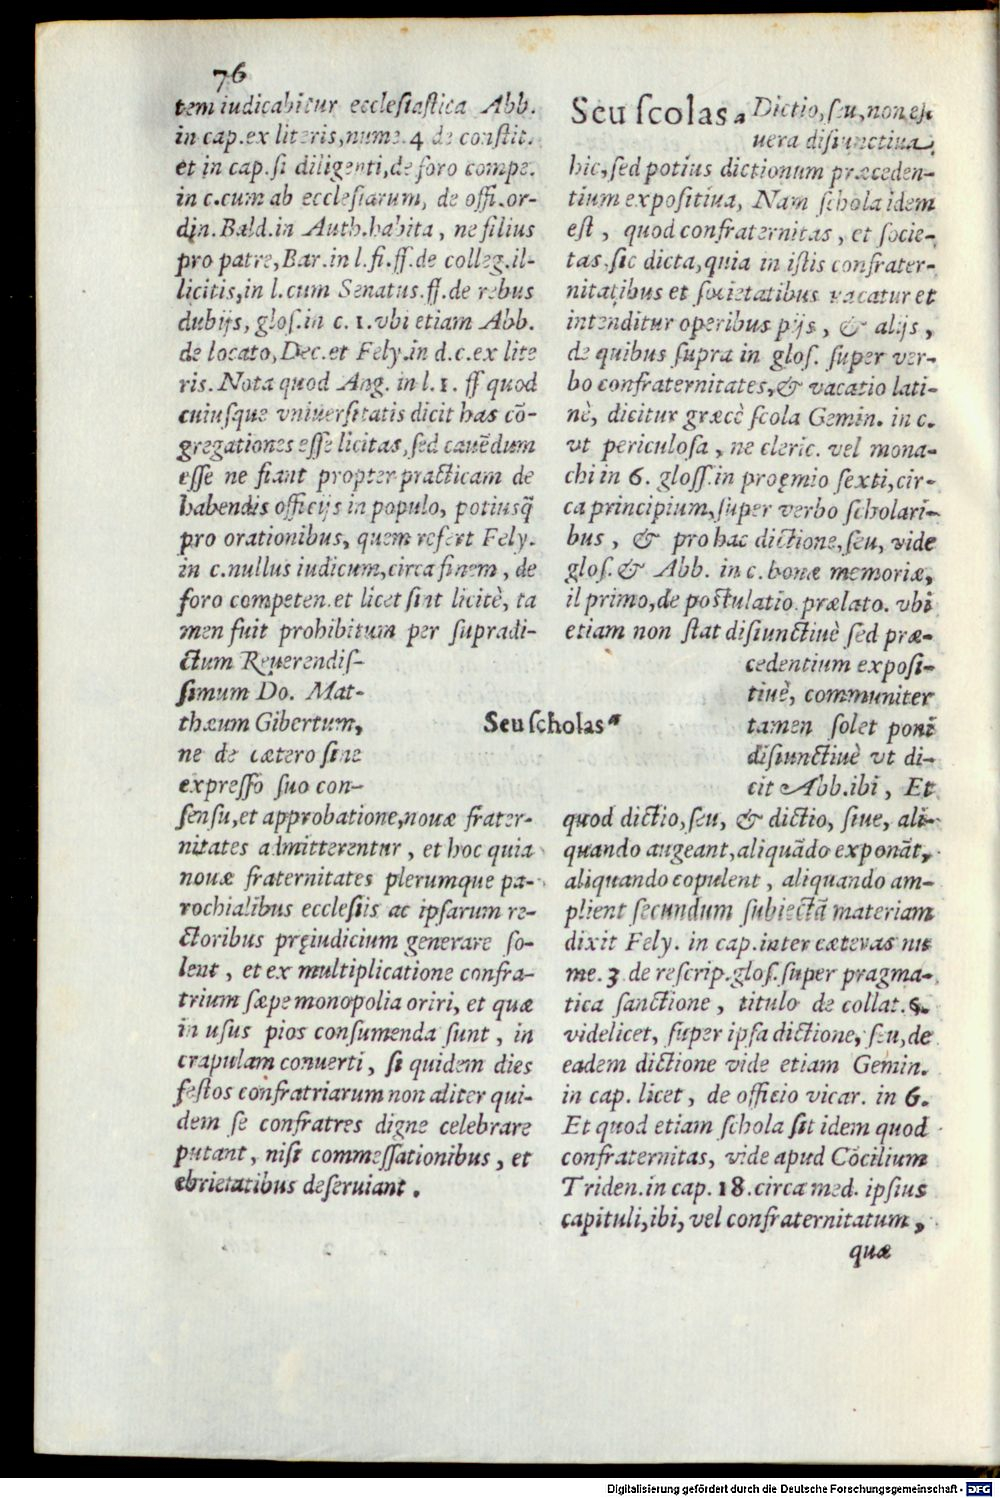 76
tem iudicabitur ecclesiastica Abb.
in cap. ex literis, nume. 4 de constit.
et in cap. si diligenti, de foro compe.
in c. cum ab ecclesiarum, de offi. or-
din. Bald. in Auth. habita, ne filius
pro patre, Bar. in l. fi. ff. de colleg. il-
licitis, in l. cum Senatus. ff. de rebus
dubijs, glos. in c. 1. vbi etiam Abb.
de locato, Dec. et Fely. in d. c. ex lite
ris. Nota quod Ang. in l. 1. ff quod
cuiusque vniuersitatis dicit has cõ-
gregationes esse licitas, sed cauẽdum
esse ne fiant propter practicam de
habendis officijs in populo, potiusq̃
pro orationibus, quem refert Fely.
in c. nullus iudicum, circa finem, de
foro competen. et licet sint licitè, ta
men fuit prohibitum per supradi-
ctum Reuerendis-
simum Do. Mat-
thæum Gibertum,
ne de cætero sine
expresso suo con-
sensu, et approbatione, nouæ frater-
nitates admitterentur, et hoc quia
nouæ fraternitates plerumque pa-
rochialibus ecclesiis ac ipsarum re-
ctoribus pręiudicium generare so-
lent, et ex multiplicatione confra-
trium sæpe monopolia oriri, et quæ
in usus pios consumenda sunt, in
crapulam conuerti, si quidem dies
festos confratriarum non aliter qui-
dem se confratres digne celebrare
putant, nisi commessationibus, et
ebrietatibus deseruiant.
Seu scholas a
Seu scolas a Dictio, seu, non est
vera disiunctiua
hic, sed potius dictionum præceden-
tium expositiua, Nam schola idem
est, quod confraternitas, et socie-
tas, sic dicta, quia in istis confrater-
nitatibus et societatibus vacatur et
intenditur operibus pijs, & alijs,
de quibus supra in glos. super ver-
bo confraternitates, & vacatio lati-
nè, dicitur græcè scola Gemin. in c.
vt periculosa, ne cleric. vel mona-
chi in 6. gloss. in proęmio sexti, cir-
ca principium, super verbo scholari-
bus, & pro hac dictione, seu, vide
glos. & Abb. in c. bonæ memoriæ,
il primo, de postulatio. prælato. vbi
etiam non stat disiunctiuè sed præ-
cedentium exposi-
tiuè, communiter
tamen solet poni
disiunctiuè vt di-
cit Abb. ibi, Et
quod dictio, seu, & dictio, siue, ali-
quando augeant, aliquãdo exponãt,
aliquando copulent, aliquando am-
plient secundum subiectã materiam
dixit Fely. in cap. inter cæteras nu
me. 3 de rescrip. glos. super pragma-
tica sanctione, titulo de collat. §.
videlicet, super ipsa dictione, seu, de
eadem dictione vide etiam Gemin.
in cap. licet, de officio vicar. in 6.
Et quod etiam schola sit idem quod
confraternitas, vide apud Cõcilium
Triden. in cap. 18. circa med. ipsius
capituli, ibi, vel confraternitatum,
quæ
Digitalisierung gefördert durch die Deutsche Forschungsgemeinschaft - DFG